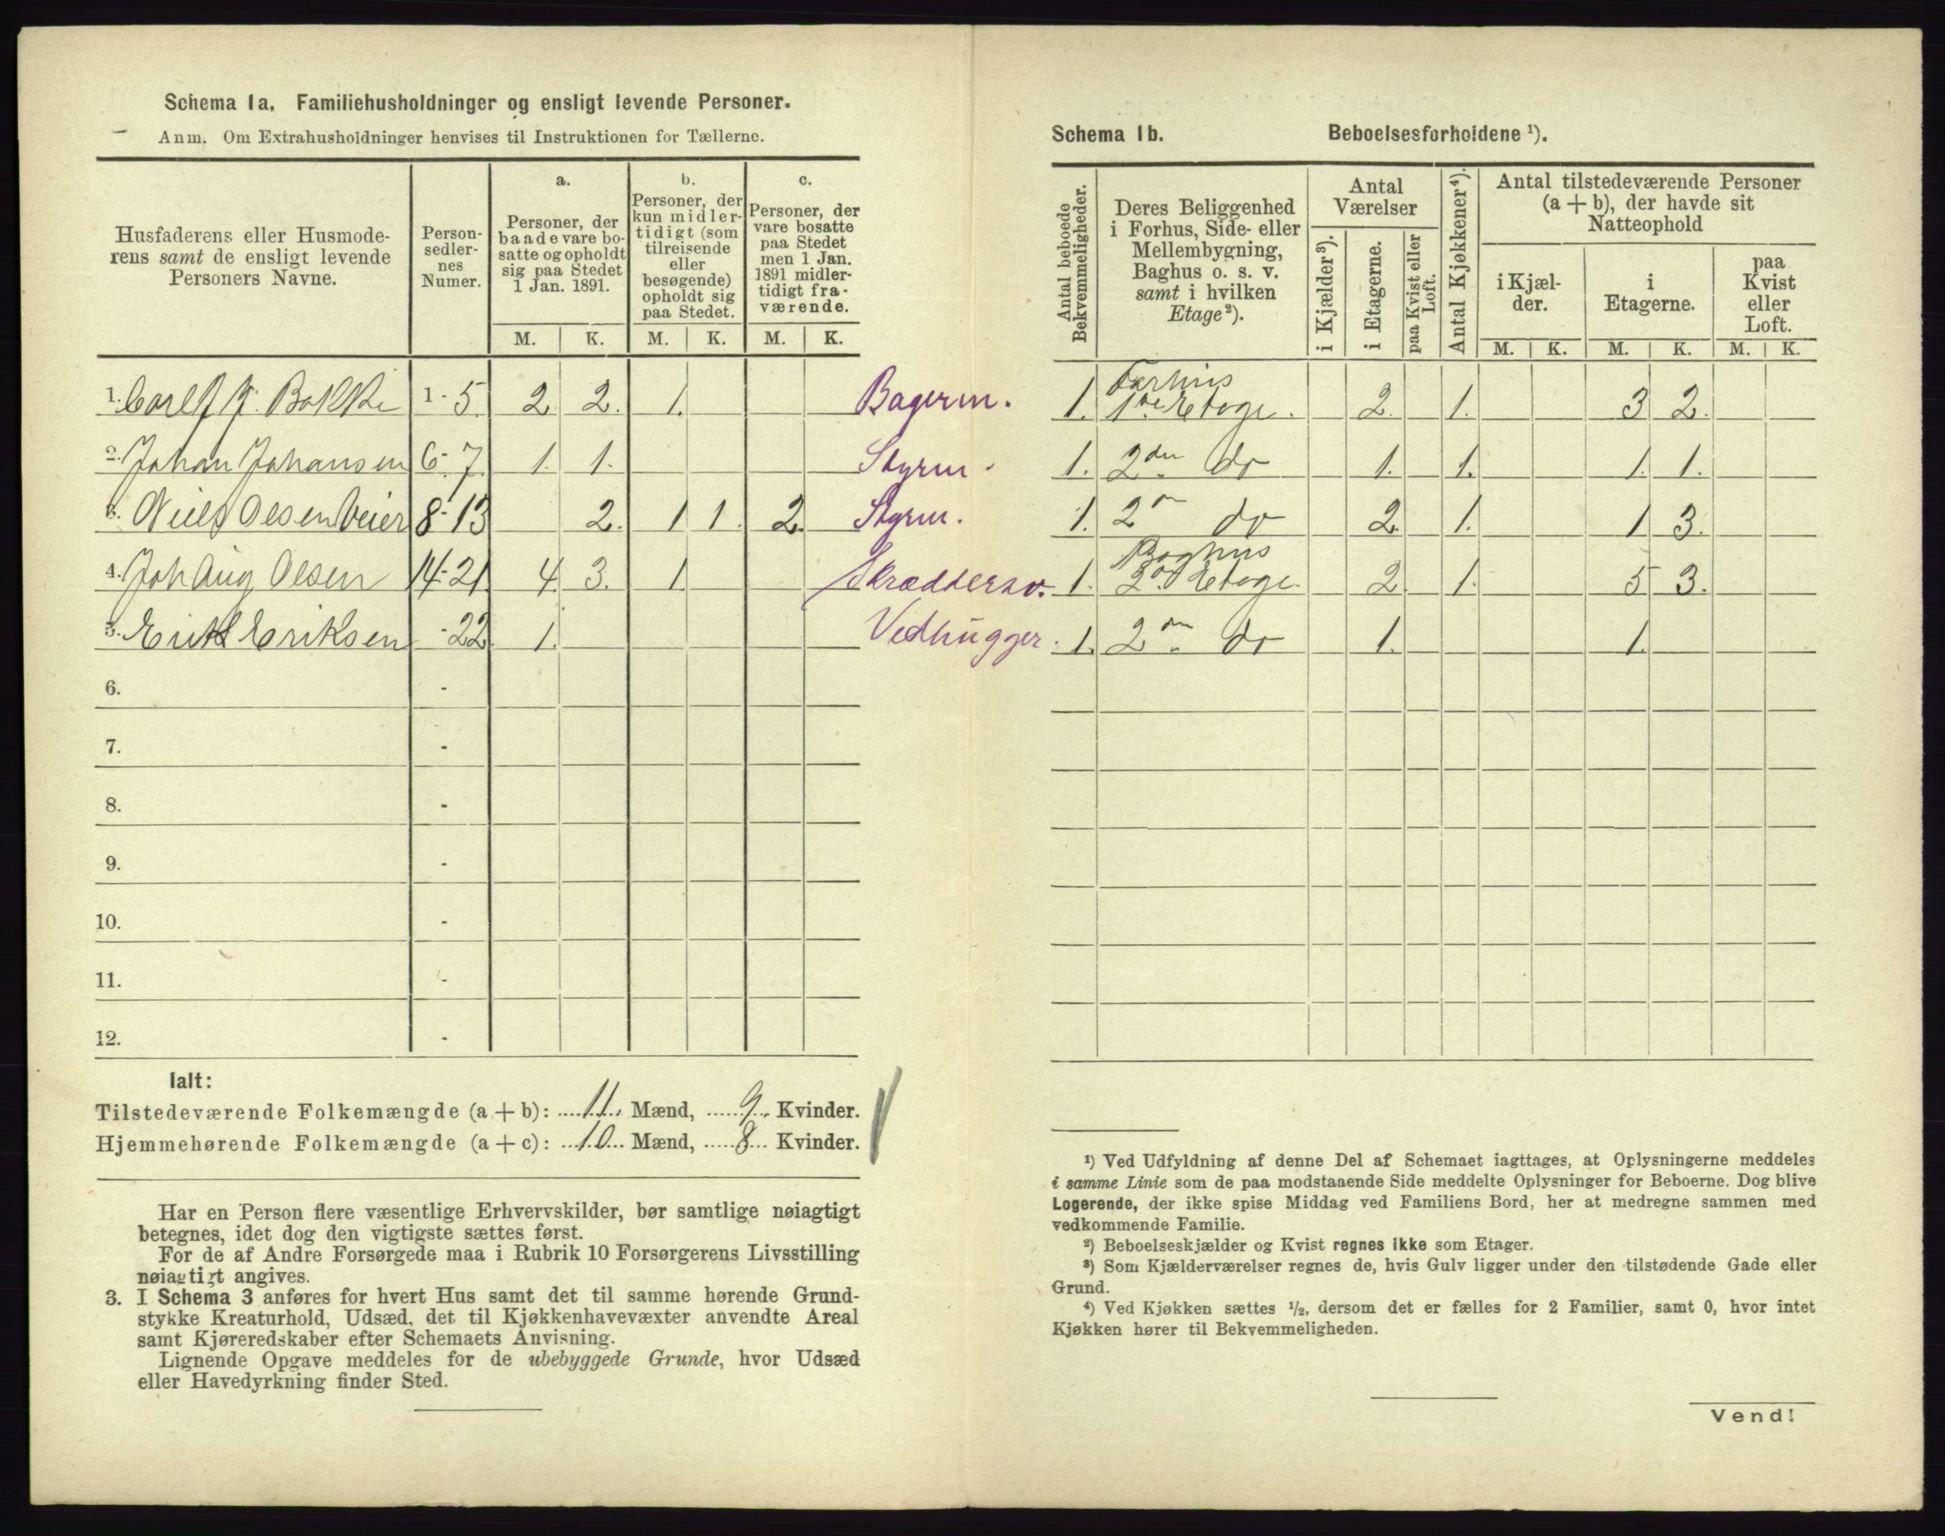 Schema 1a. Familiehusholdninger og ensligt levende Personer.
Anm. Om Extrahusholdninger henvises til Instruktionen for Tællerne.
Husfaderens eller Husmode-
rens samt de ensligt levende
Personers Navne.
Person-
sedler-
nes
Numer.
a.
Personer, der
baade vare bo-
satte og opholdt
sig paa Stedet
1 Jan. 1891.
b.
Personer, der
kun midler-
tidigt (som
tilreisende
eller
besøgende)
opholdt sig
paa Stedet.
c.
Personer, der
vare bosatte
paa Stedet
men 1 Jan.
1891 midler-
tidigt fra-
værende.
M. K. M. K. M. K.
1. Carl J. Bakke 1-5. 2. 2. 1. Bagerm.
2. Johan Johansen 6-7. 1. 1. Styrm.
3. Niels Olsen Veier 8-13 2. 1 1. 2. Styrm.
4. Joh Aug Olsen 14-21. 4 3. 1. Skræddersv.
5. Erik Eriksen -22. 1. Vedhugger.
6. -
7. -
8. -
9. -
10. -
11. -
12. -
Ialt:
Tilstedeværende Folkemængde (a + b): 11. Mænd, 9. Kvinder.
Hjemmehørende Folkemængde (a + c): 10 Mænd, 8 Kvinder.
Har en Person flere væsentlige Erhvervskilder, bør samtlige nøiagtigt
betegnes, idet dog den vigtigste sættes først.
For de af Andre Forsørgede maa i Rubrik 10 Forsørgerens Livsstilling
nøiagtigt angives.
3. I Schema 3 anføres for hvert Hus samt det til samme hørende Grund-
stykke Kreaturhold, Udsæd, det til Kjøkkenhavevæxter anvendte Areal
samt Kjøreredskaber efter Schemaets Anvisning.
Lignende Opgave meddeles for de ubebyggede Grunde, hvor Udsæd
eller Havedyrkning finder Sted.
Schema 1b. Beboelsesforholdene ¹).
Antal beboede
Bekvemmeligheder.
Deres Beliggenhed
i Forhus, Side- eller
Mellembygning,
Baghus o. s. v.
samt i hvilken
Etage²).
Antal
Værelser
i Kjælder ³).
i Etagerne.
paa Kvist eller
Loft.
Antal Kjøkkener⁴).
Antal tilstedeværende Personer
(a + b), der havde sit
Natteophold
i Kjæl-
der.
i
Etagerne.
paa
Kvist
eller
Loft.
M. K. M. K. M. K.
1. Forhus
1ste Etage. 2. 1. 3 2.
1. 2den do 1. 1. 1. 1.
1. 2n do 2. 1. 1 3.
1. Baghus
2den Etage. 2. 1. 5 3.
1. 2den do 1. 1.
¹) Ved Udfyldning af denne Del af Schemaet iagttages, at Oplysningerne meddeles
i samme Linie som de paa modstaaende Side meddelte Oplysninger for Beboerne. Dog blive
Logerende, der ikke spise Middag ved Familiens Bord, her at medregne sammen med
vedkommende Familie.
²) Beboelseskjælder og Kvist regnes ikke som Etager.
³) Som Kjælderværelser regnes de, hvis Gulv ligger under den tilstødende Gade eller
Grund.
⁴) Ved Kjøkken sættes ¹/₂, dersom det er fælles for 2 Familier, samt 0, hvor intet
Kjøkken hører til Bekvemmeligheden.
Vend!